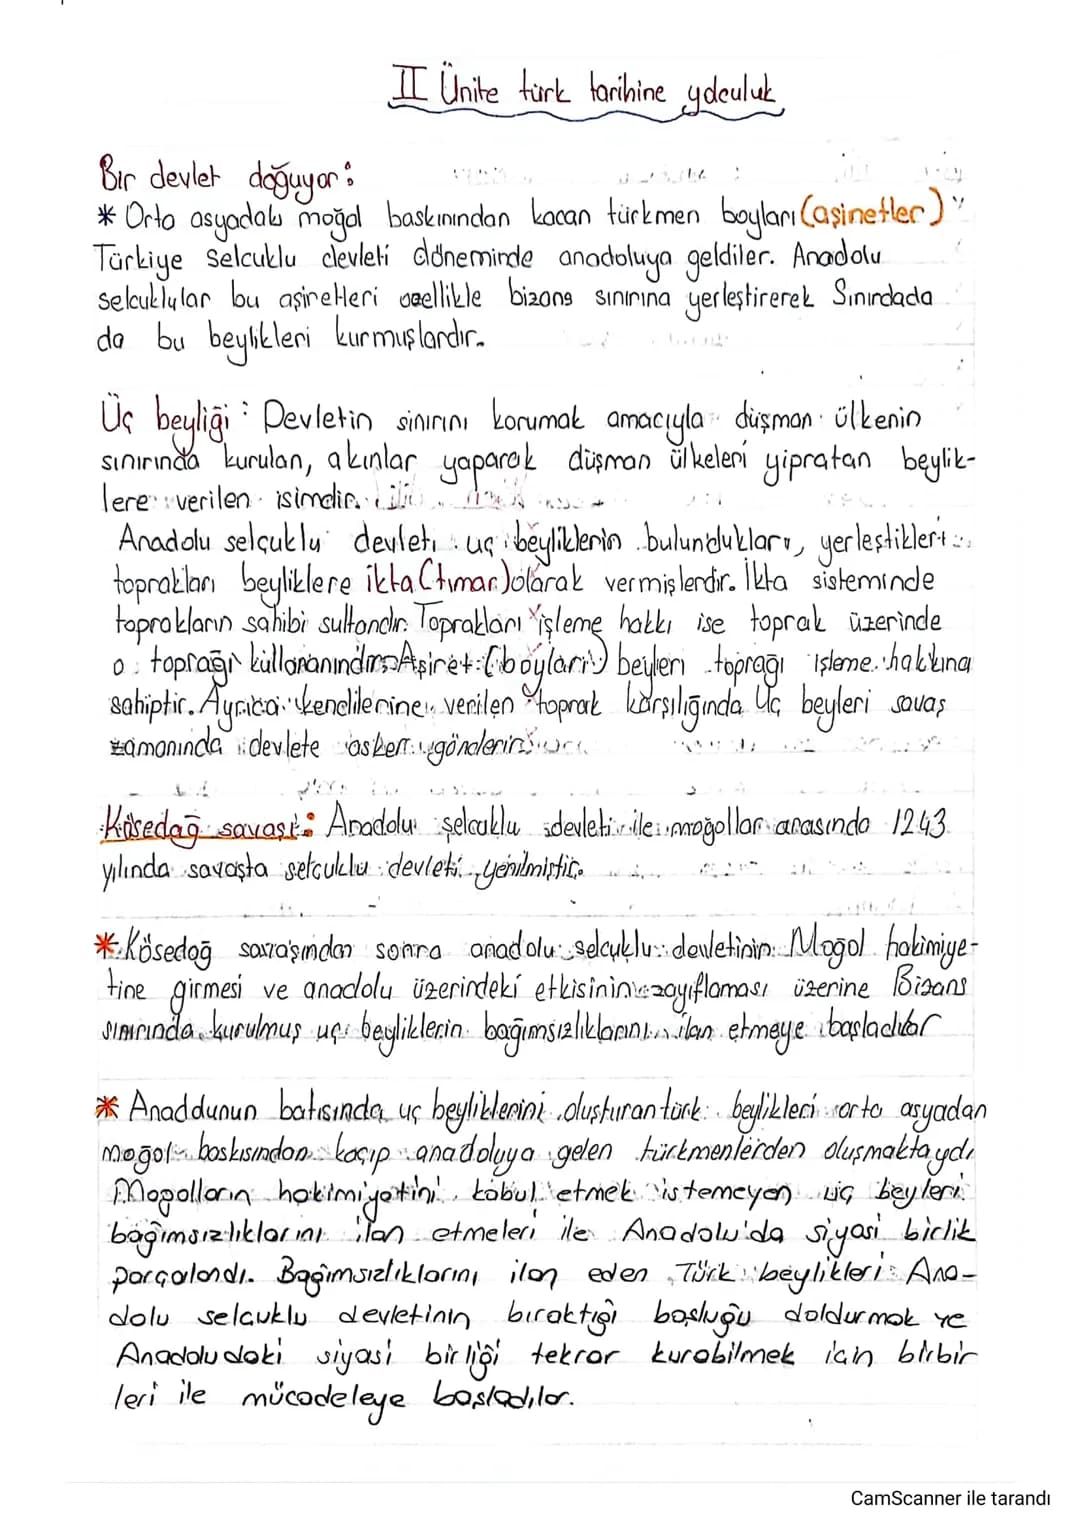 II Ünite türk tarihine yolculuk
Bir devlet doğuyor:
* Orta asyadaki moğol baskınından kacan türkmen boyları (aşinetler)
Türkiye Selcuklu devleti döneminde anadoluya geldiler. Anadolu
selcuklular bu aşiretleri özellikle bizans sınırına yerleştirerek Sınırdada
da bu beylikleri kurmuşlardır.
Üç beyliği : Devletin sınırını korumak amacıyla düşman ülkenin
sınırında kurulan, akınlar yaparak düşman ülkeleri yipratan beylik-
lere verilen isimdir.
Anadolu selçuklu devleti uç beyliklerin bulundukları, yerleştikleri
toprakları beyliklere ikta (tımar) olarak vermişlerdir. İkta sisteminde
toprakların sahibi sultandır. Toprakları işleme hakkı ise toprak üzerinde
o toprağı kullananındır. Aşiret (boyları) beyleri toprağı işleme hakkına
sahiptir. Ayrıca kendilerine verilen toprak karşılığında Uç beyleri savaş
zamanında devlete asker gönderir.
Kösedağ savaşı: Anadolu şelcuklu devleti ile moğollar arasında 1243
yılında savaşta selcuklu devleti yenilmiştir.
* Kösedağ savaşından sonra anadolu selçuklu devletinin Moğol hakimiye-
tine girmesi ve anadolu üzerindeki etkisinin zayıflaması üzerine Bizans
sınırında kurulmuş uç beyliklerin bağımsızlıklarını ilan etmeye başladılar
* Anadolunun batısında uç beyliklerini oluşturan türk beylikleri orta asyadan
moğol baskısından kaçıp anadoluya gelen türkmenlerden oluşmaktaydı
Moğolların hakimiyetini kabul etmek istemeyen uç beyleri
bağımsızlıklarını ilan etmeleri ile Anadolu'da siyasi birlik
parçalandı. Bağımsızlıklarını ilan eden Türk beylikleri Ana-
dolu selçuklu devletinin bıraktığı boşluğu doldurmak ve
Anadoludaki siyasi birliği tekrar kurabilmek için birbir
leri ile mücadeleye başladılar.
CamScanner ile tarandı